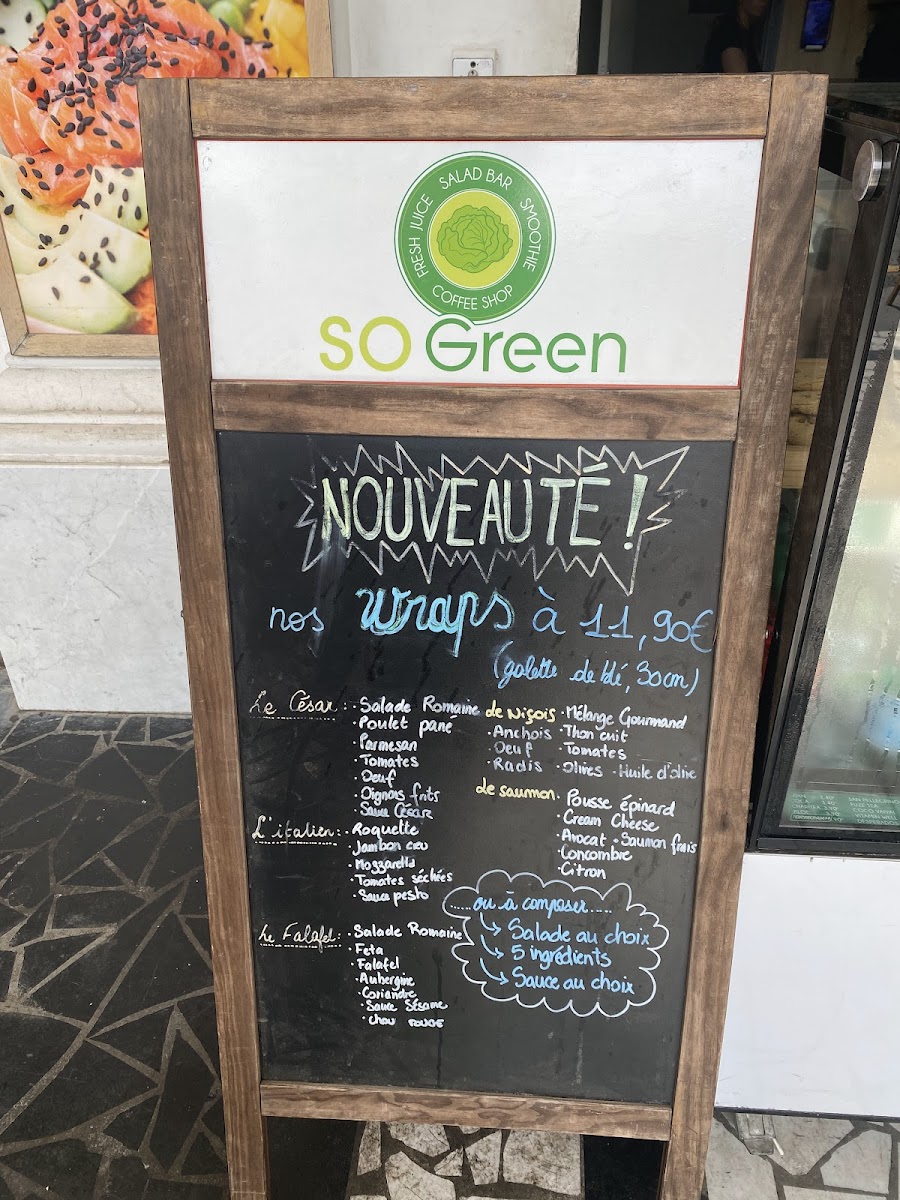 FRESH JUICE SALAD BAR SMOOTHIE
COFFEE SHOP
SO Green
NOUVEAUTÉ !
nos wraps à 11,90€
(galette de blé, 30cm)
Le César :
· Salade Romaine
· Poulet pané
· Parmesan
· Tomates
· Oeuf
· Oignons frits
· Sauce César
L'italien :
· Roquette
· Jambon cru
· Mozzarella
· Tomates séchées
· Sauce pesto
Le Falafel :
· Salade Romaine
· Feta
· Falafel
· Aubergine
· Coriandre
· Sauce Sésame
· chou ROUGE
Le Niçois
· Mélange Gourmand
· Anchois · Thon cuit
· Oeuf · Tomates
· Radis · Olives · Huile d'olive
Le saumon
· Pousse épinard
· Cream Cheese
· Avocat · Saumon frais
· Concombre
· Citron
.....ou à composer....
Salade au choix
5 ingrédients
Sauce au choix
SAN PELLEGRINO
COCA